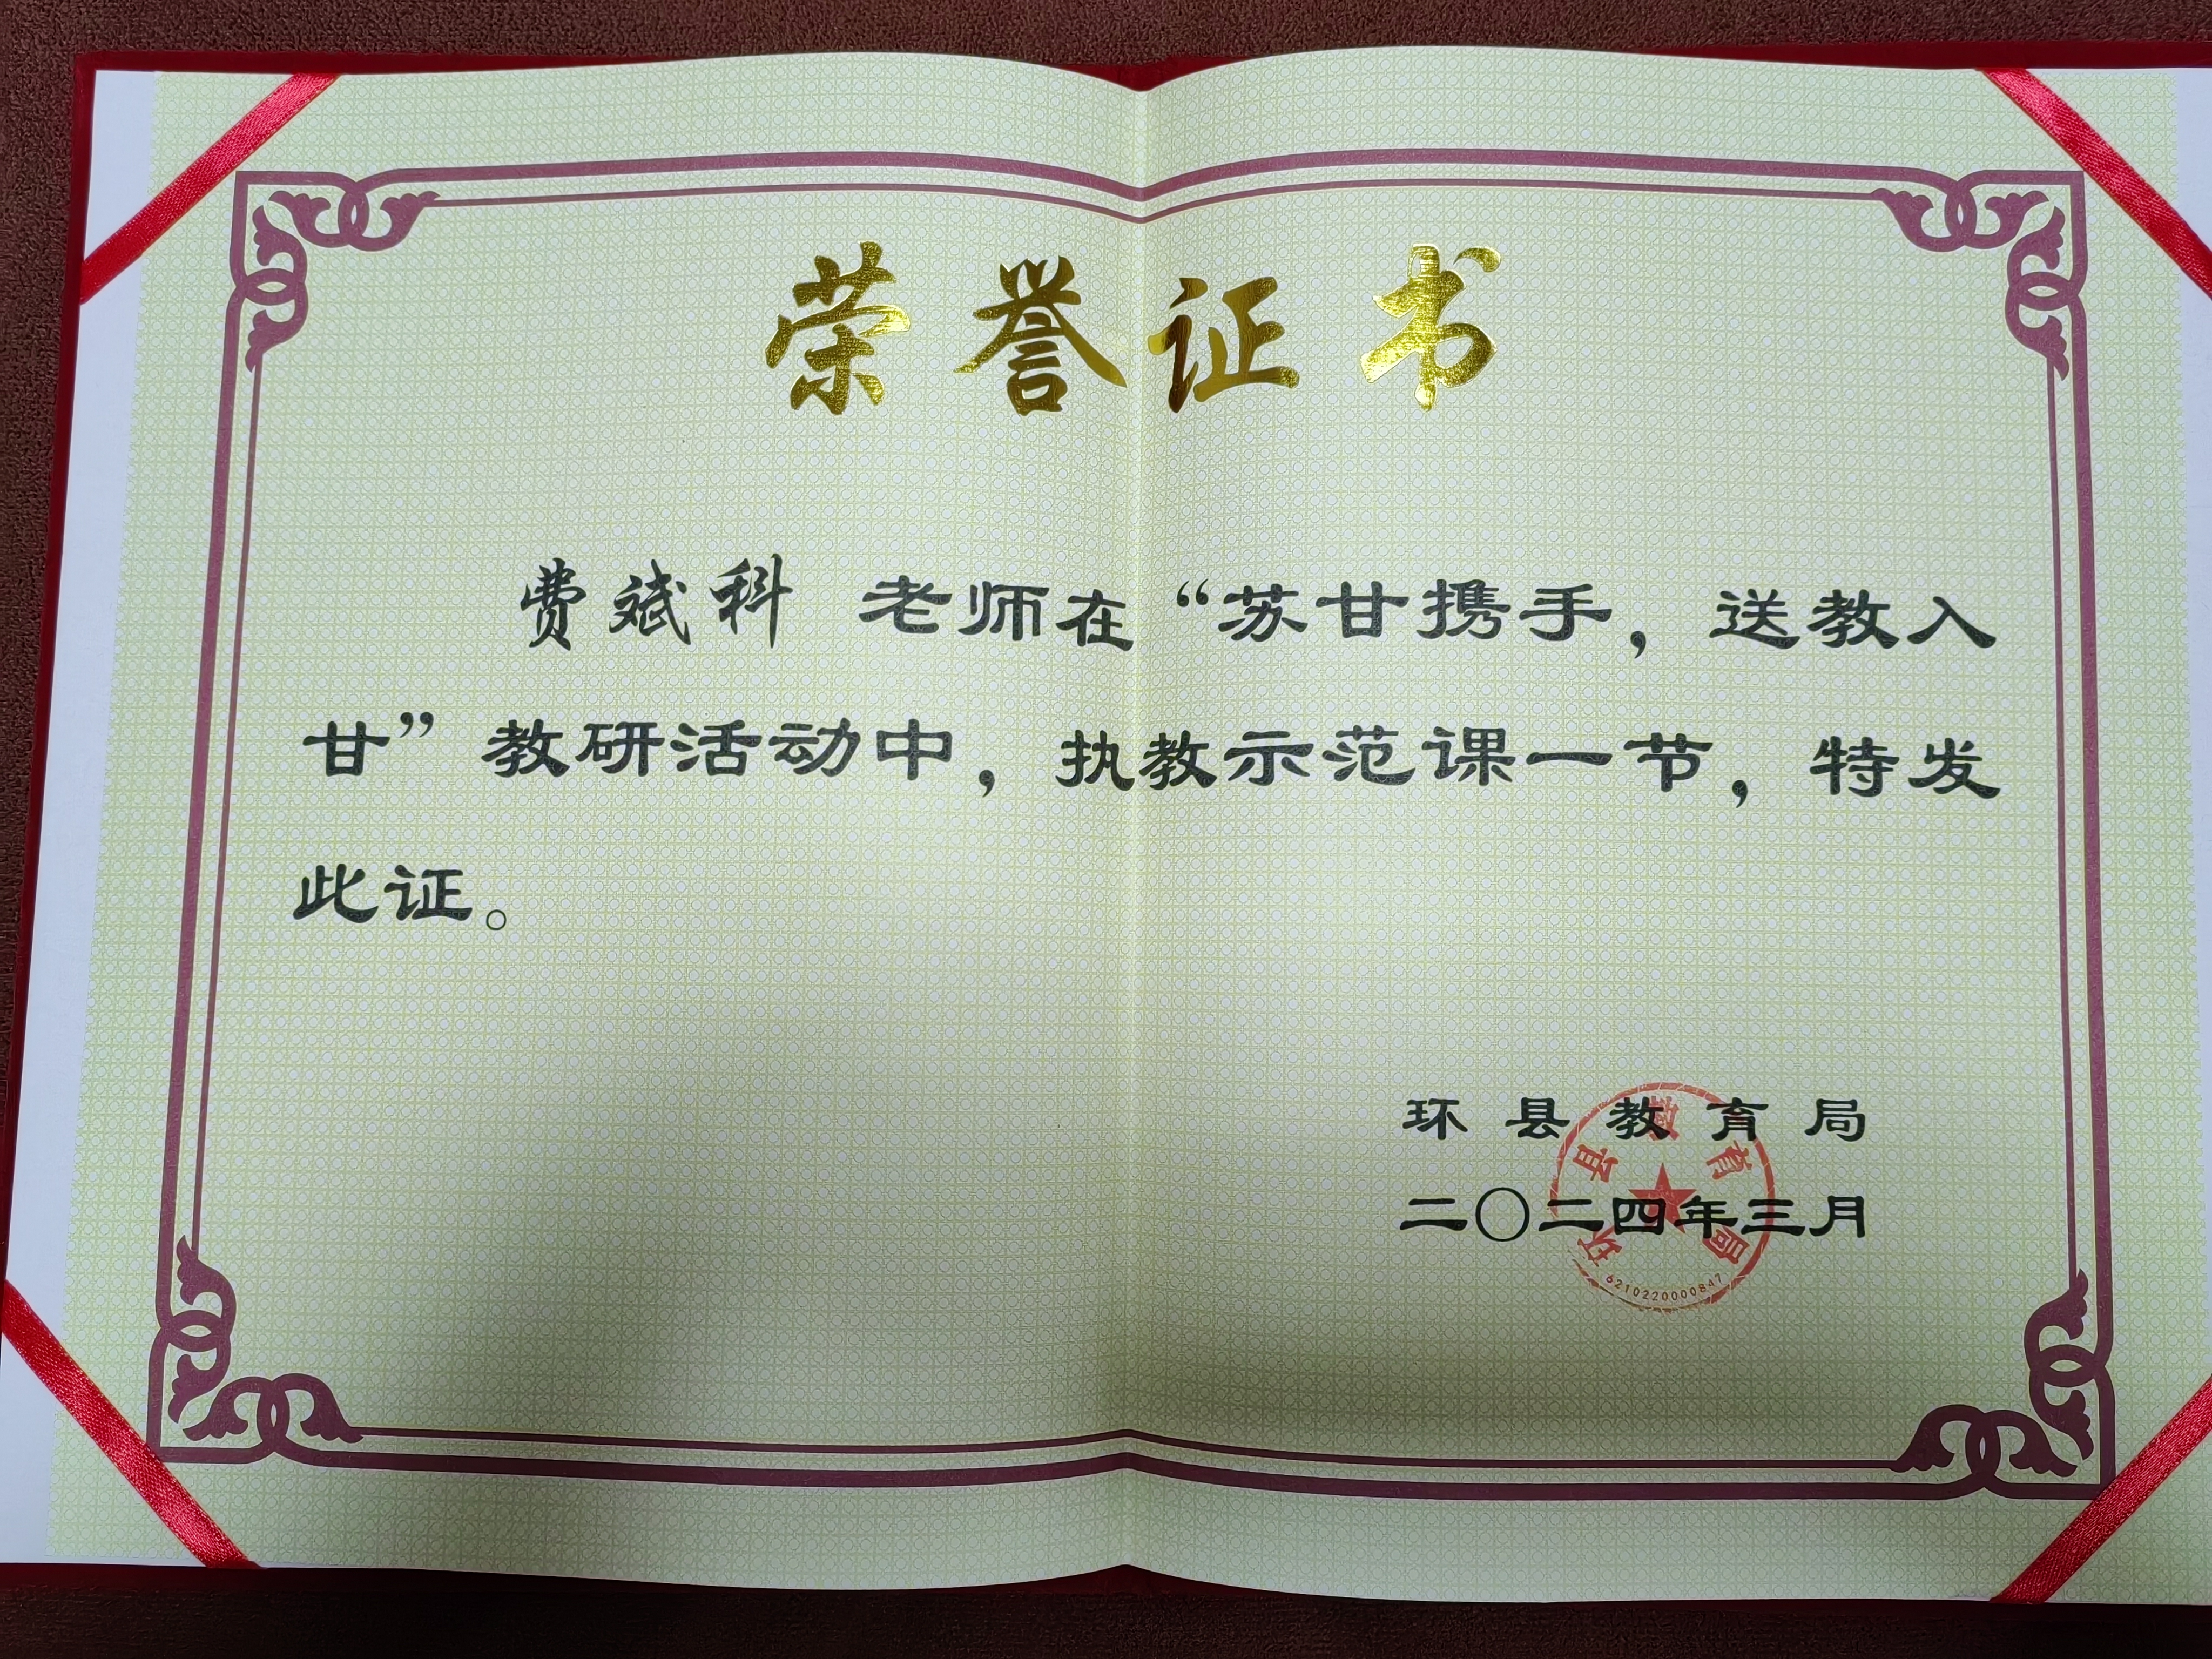 荣誉证书
费斌科 老师在“苏甘携手，送教入
甘”教研活动中，执教示范课一节，特发
此证。
环县教育局
二〇二四年三月
环县教育局
6210220000847